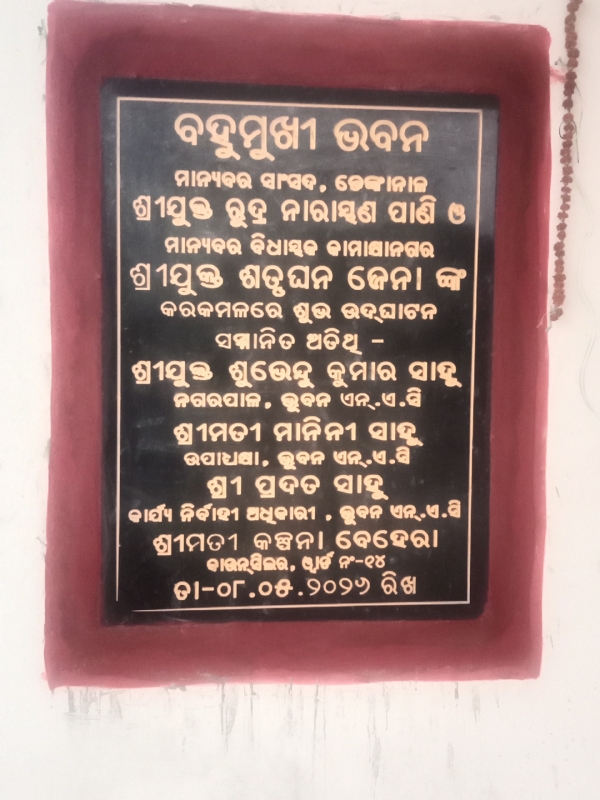 ବହୁମୁଖୀ ଭବନ
ମାନ୍ୟବର ସାଂସଦ, ଢେଙ୍କାନାଳ
ଶ୍ରୀଯୁକ୍ତ ରୁଦ୍ର ନାରାୟଣ ପାଣି ଓ
ମାନ୍ୟବର ବିଧାୟକ କାମାକ୍ଷାନଗର
ଶ୍ରୀଯୁକ୍ତ ଶତୃଘନ ଜେନା ଙ୍କ
କରକମଳରେ ଶୁଭ ଉଦ୍‌ଘାଟନ
ସମ୍ମାନିତ ଅତିଥି -
ଶ୍ରୀଯୁକ୍ତ ଶୁଭେନ୍ଦୁ କୁମାର ସାହୁ
ନଗରପାଳ, ଭୁବନ ଏନ୍.ଏ.ସି
ଶ୍ରୀମତୀ ମାନିନୀ ସାହୁ
ଉପାଧ୍ୟକ୍ଷା, ଭୁବନ ଏନ୍.ଏ.ସି
ଶ୍ରୀ ପ୍ରଦତ ସାହୁ
କାର୍ଯ୍ୟ ନିର୍ବାହୀ ଅଧିକାରୀ , ଭୁବନ ଏନ୍.ଏ.ସି
ଶ୍ରୀମତୀ କଞ୍ଚନା ବେହେରା
କାଉନ୍‌ସିଲର, ୱାର୍ଡ ନଂ-୧୪
ତା-୦୮.୦୫.୨୦୨୬ ରିଖ